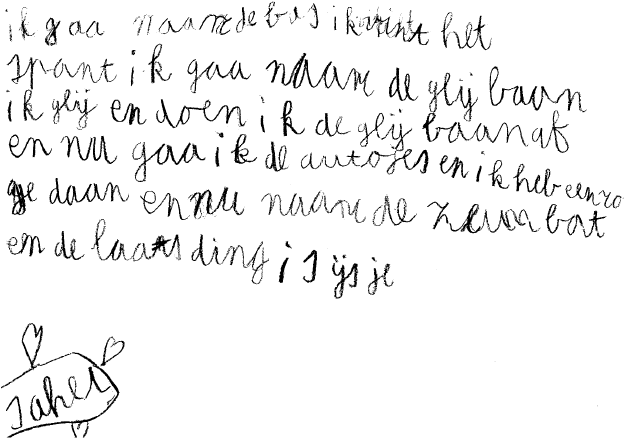 ik gaa naar de bus ik vint het
spant ik gaa naar de glij baan
ik glij en doen ik de glij baan af
en nu gaa ik de autojes en ik heb een zo
ge daan en nu naar de zwem bat
en de laats ding is ijs je
Jahel